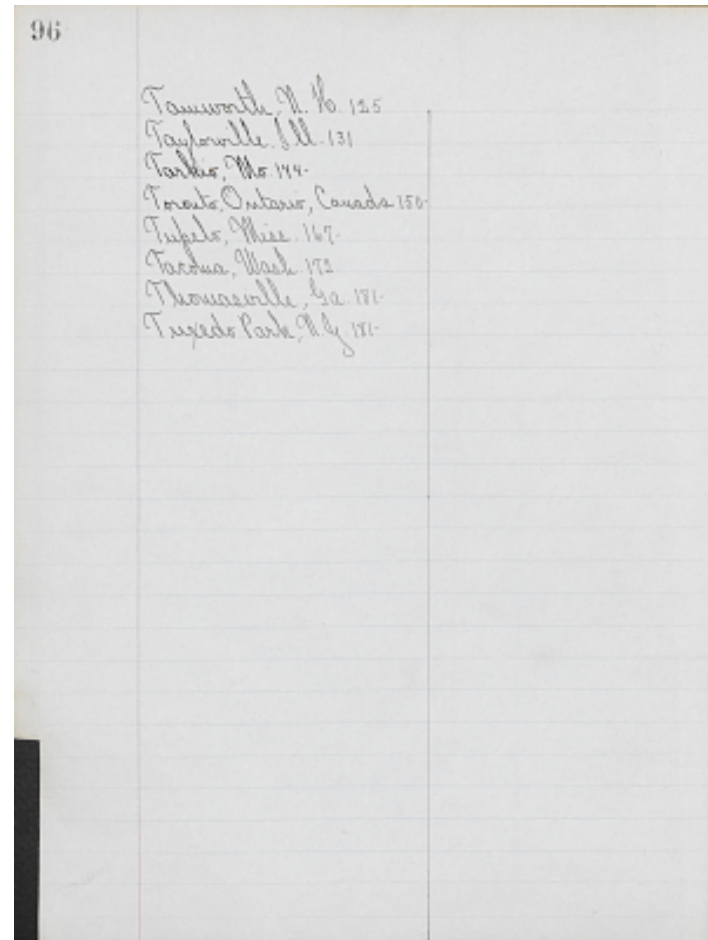 96
Tamworth, N. H. 125
Taylorville. Ill. 131
Tarkio, Mo. 144-
Toronto, Ontario, Canada 150-
Tupelo, Miss. 167-
Tacoma, Wash. 172
Thomasville, Ga. 181-
Tuxedo Park, N.Y. 181-